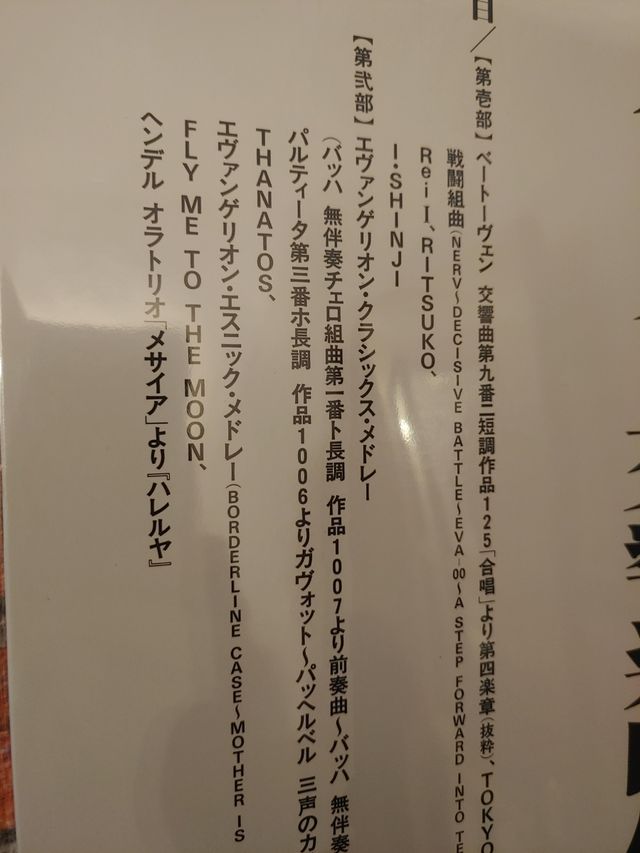 目/
【第壱部】ベートーヴェン 交響曲第九番ニ短調作品125「合唱」より第四楽章(抜粋)、TOKYO
戦闘組曲(NERV~DECISIVE BATTLE~EVA-00~A STEP FORWARD INTO TE
Rei I、RITSUKO、
I・SHINJI
【第弐部】エヴァンゲリオン・クラシックス・メドレー
(バッハ 無伴奏チェロ組曲第一番ト長調 作品1007より前奏曲~バッハ 無伴奏
パルティータ第三番ホ長調 作品1006よりガヴォット~パッヘルベル 三声のカ
THANATOS、
エヴァンゲリオン・エスニック・メドレー(BORDERLINE CASE~MOTHER IS
FLY ME TO THE MOON、
ヘンデル オラトリオ「メサイア」より『ハレルヤ』